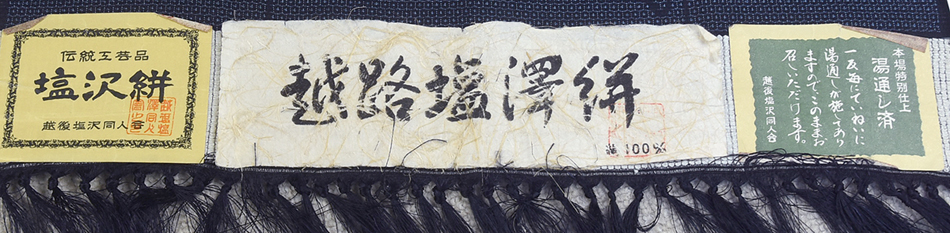 伝統工芸品
塩沢絣
越後塩沢同人会
越路塩澤絣
絹100%
本場特別仕上
湯通し済
一反毎にていねいに
湯通しが施してあり
ますので、このままお
召しいただけます。
越後塩沢同人会